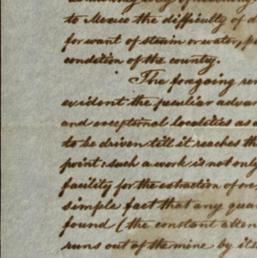 to Mexico the difficulty of d
for want of steam or water, po
condition of the country.
The foregoing rem
evident the peculiar advan
and exceptional localities as a
to be driven till it reaches th
point: such a work is not only
facility for the extraction of or
simple fact that any qua
found (the constant atten
runs out of the mine by its